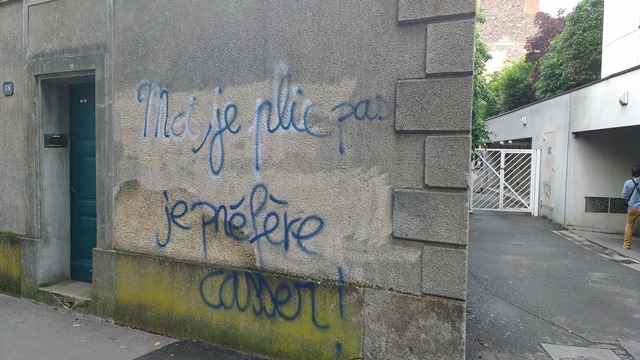 Moi, je plie pas
je préfère
casser !